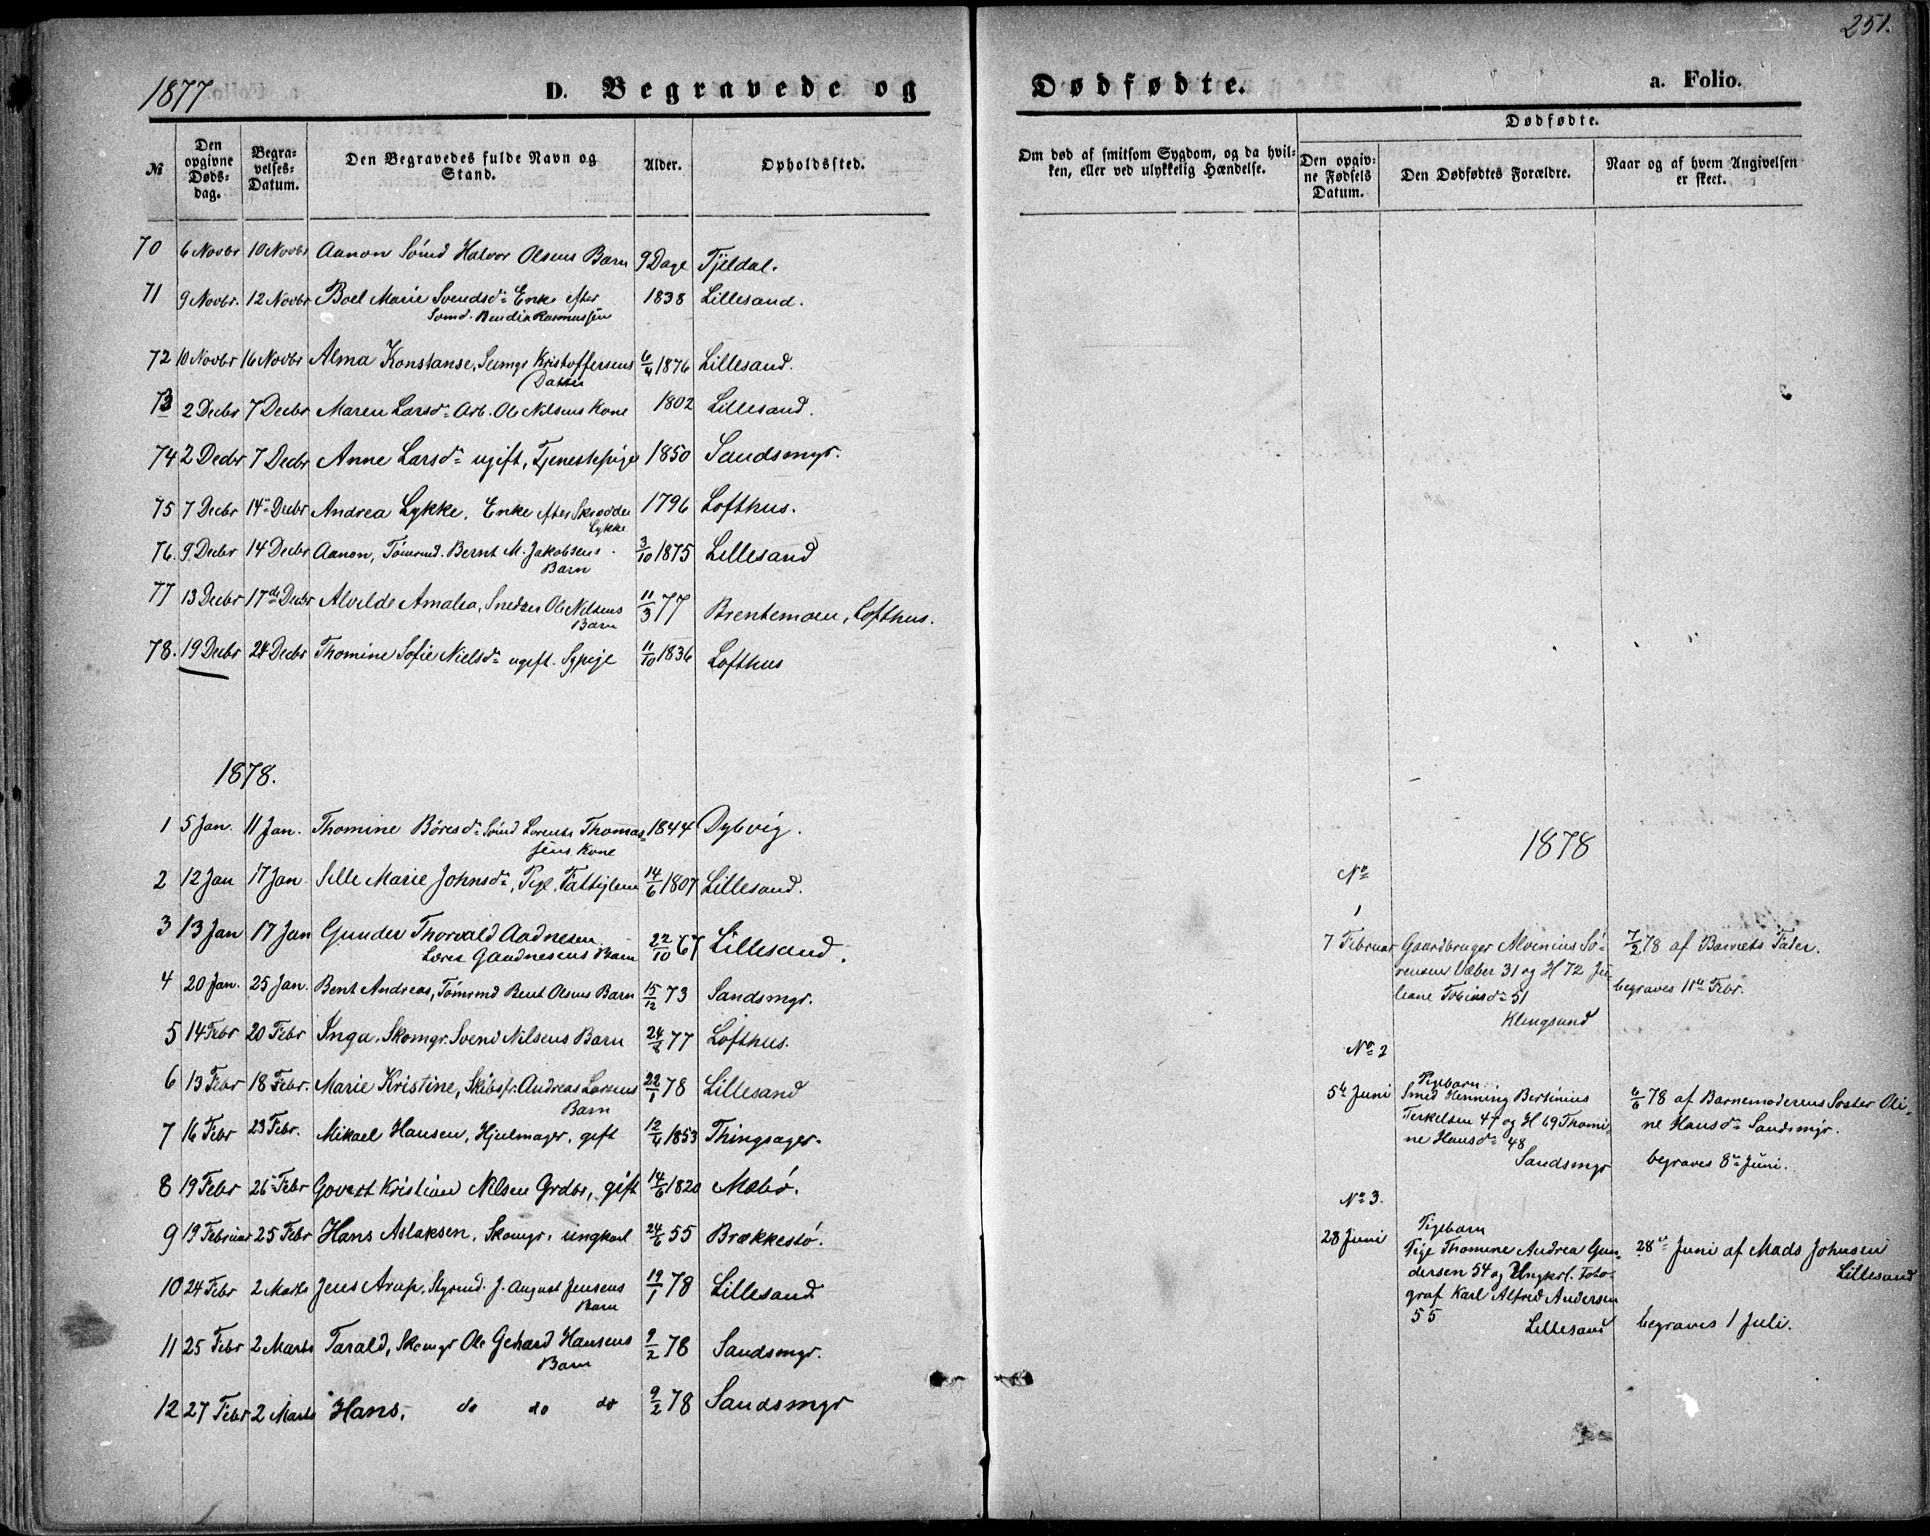 251.
1877
D. Begravede og Dødfødte.
a. Folio.
№
Den opgivne Døds-dag.
Begra-velses-Datum.
Den Begravedes fulde Navn og Stand.
Alder.
Opholdssted.
Om død af smitsom Sygdom, og da hvil-ken, eller ved ulykkelig Hændelse.
Dødfødte.
Den opgiv-ne Fødsels Datum.
Den Dødfødtes Forældre.
Naar og af hvem Angivelsen er skeet.
70 6 Novbr 10 Novbr Aanon Sømd Halvor Olsens Barn 9 Dage Tjeldal.
71 9 Novbr. 12 Novbr Boel Marie Svendsd. Enke efter 1838 Lillesand.
Sømd. Bendix Rasmussen
72 10 Novbr 16 Novbr Alma Konstanse, Kristoffersens 6/4 1876 Lillesand.
Datter
73 2 Decbr 7 Decbr Maren Larsd. Arb. Ole Nilsens Kone 1802 Lillesand.
74 2 Decbr 7 Decbr Anne Larsd. ugift, Tjenestepige 1850 Sandsmyr.
75 7 Decbr 14 Decbr Andrea Lykke, Enke efter Skrædder 1796 Lofthus.
Lykke
76. 9 Decbr 14 Decbr Aanon, Tømmd. Bernt M. Jakobsens 3/10 1875 Lillesand
Barn
77 13 Decbr 17de Decbr Alvilde Amalia, Snedker Ole Nilsens 11/3 77 Brentemoen, Lofthus.
Barn
78. 19 Decbr 24 Decbr Thomine Sofie Nielsd. ugift. Sypige 11/10 1836 Lofthus
1878.
1 5 Jan. 11 Jan. Thomine Børesd. Sømd Lorents Thomas- 1844 Dybvig.
sens Kone
2 12 Jan 17 Jan Sille Marie Johnsd., Pige, Fattiglem 14/6 1807 Lillesand.
3 13 Jan 17 Jan Gunder Thorvald Aadnesen 22/10 67 Lillesand.
Barn
4 20 Jan. 25 Jan. Bent Andreas, Tømrmd Bent Olsens Barn 15/12 73 Sandsmyr.
5 14 Febr 20 Febr Inga, Skomgr. Svend Nilsens Barn 24/8 77 Lofthus.
6 13 Febr 18 Febr. Marie Kristine, Skibsfr. Andreas Larsens 22/1 78 Lillesand
Barn
7 16 Febr 23 Febr. Mikael Hansen, Hjulmager, gift 12/4 1853 Thingsager.
8 19 Febr 26 Febr Govert Kristian Nilsen Grdbr, gift 14/6 1820 Møbø.
9 19 Februar 25 Febr Hans Aslaksen, Skomgr, ungkarl 24/6 55 Brækkestø.
10 24 Febr 2 Marts Jens Arup, Styrmd. J. August Jensens 19/1 78 Lillesand
Barn
11 25 Febr 2 Marts Tarald, Skomgr Ole Gerhard Hansens 9/2 78 Sandsmyr.
Barn
12 27 Febr 2 Marts Hans, do do do 9/2 78 Sandsmyr
1878
No
1
7 Februar Gaardbruger Alvinius Sø- 7/2 78 af Barnets Fader.
rensen Væber 31 og H 72 Ju-
liane Tobiasd. 51 begraves 11te Febr.
Klingsund
No 2
Pigebarn.
5te Juni Smed Henning Bertinius 6/6 78 af Barnemoderens Søster Oli-
Terkelsen 47 og H 69 Thomi- ne Hansd. Sandsmyr.
ne Hansd. 48
Sandsmyr begraves 8de Juni.
No 3.
Pigebarn
28 Juni Pige Thomine Andrea Gun- 28de Juni af Mads Johnsen
dersen 54 og Ungkrl. Foto- Lillesand
graf Karl Alfred Andersen
55 Lillesand begraves 1 Juli.